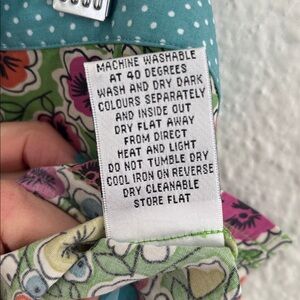 MACHINE WASHABLE
AT 40 DEGREES
WASH AND DRY DARK
COLOURS SEPARATELY
AND INSIDE OUT
DRY FLAT AWAY
FROM DIRECT
HEAT AND LIGHT
DO NOT TUMBLE DRY
COOL IRON ON REVERSE
DRY CLEANABLE
STORE FLAT